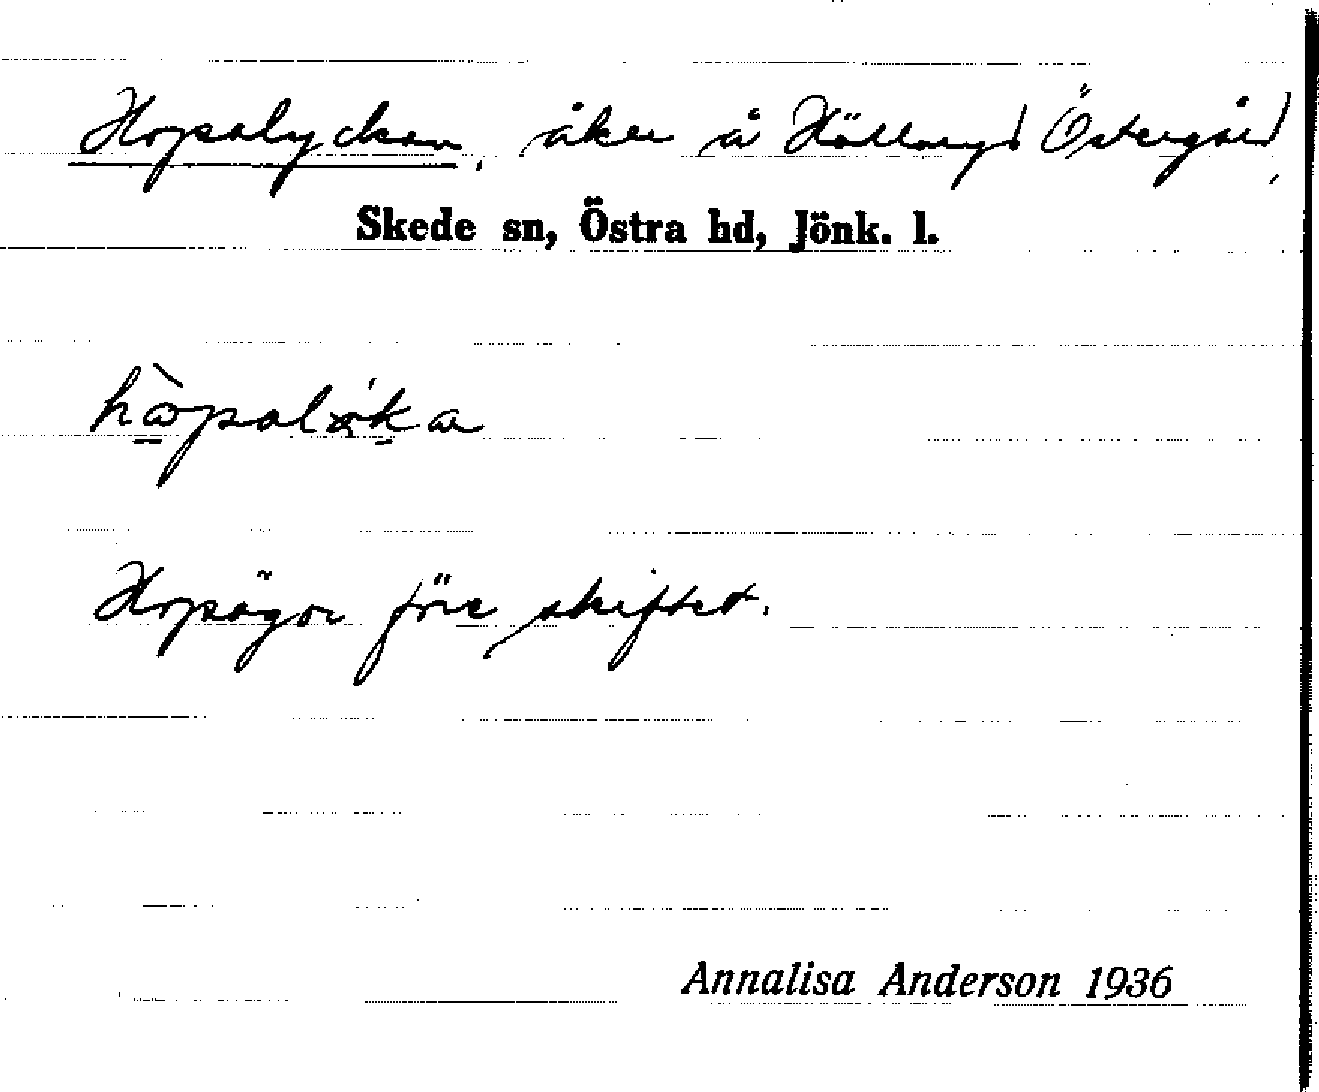 Hopalyckan, åker å Hällaryd Östergård,
Skede sn, Östra hd, Jönk. l.
Hopägor före skiftet.
Annalisa Anderson 1936